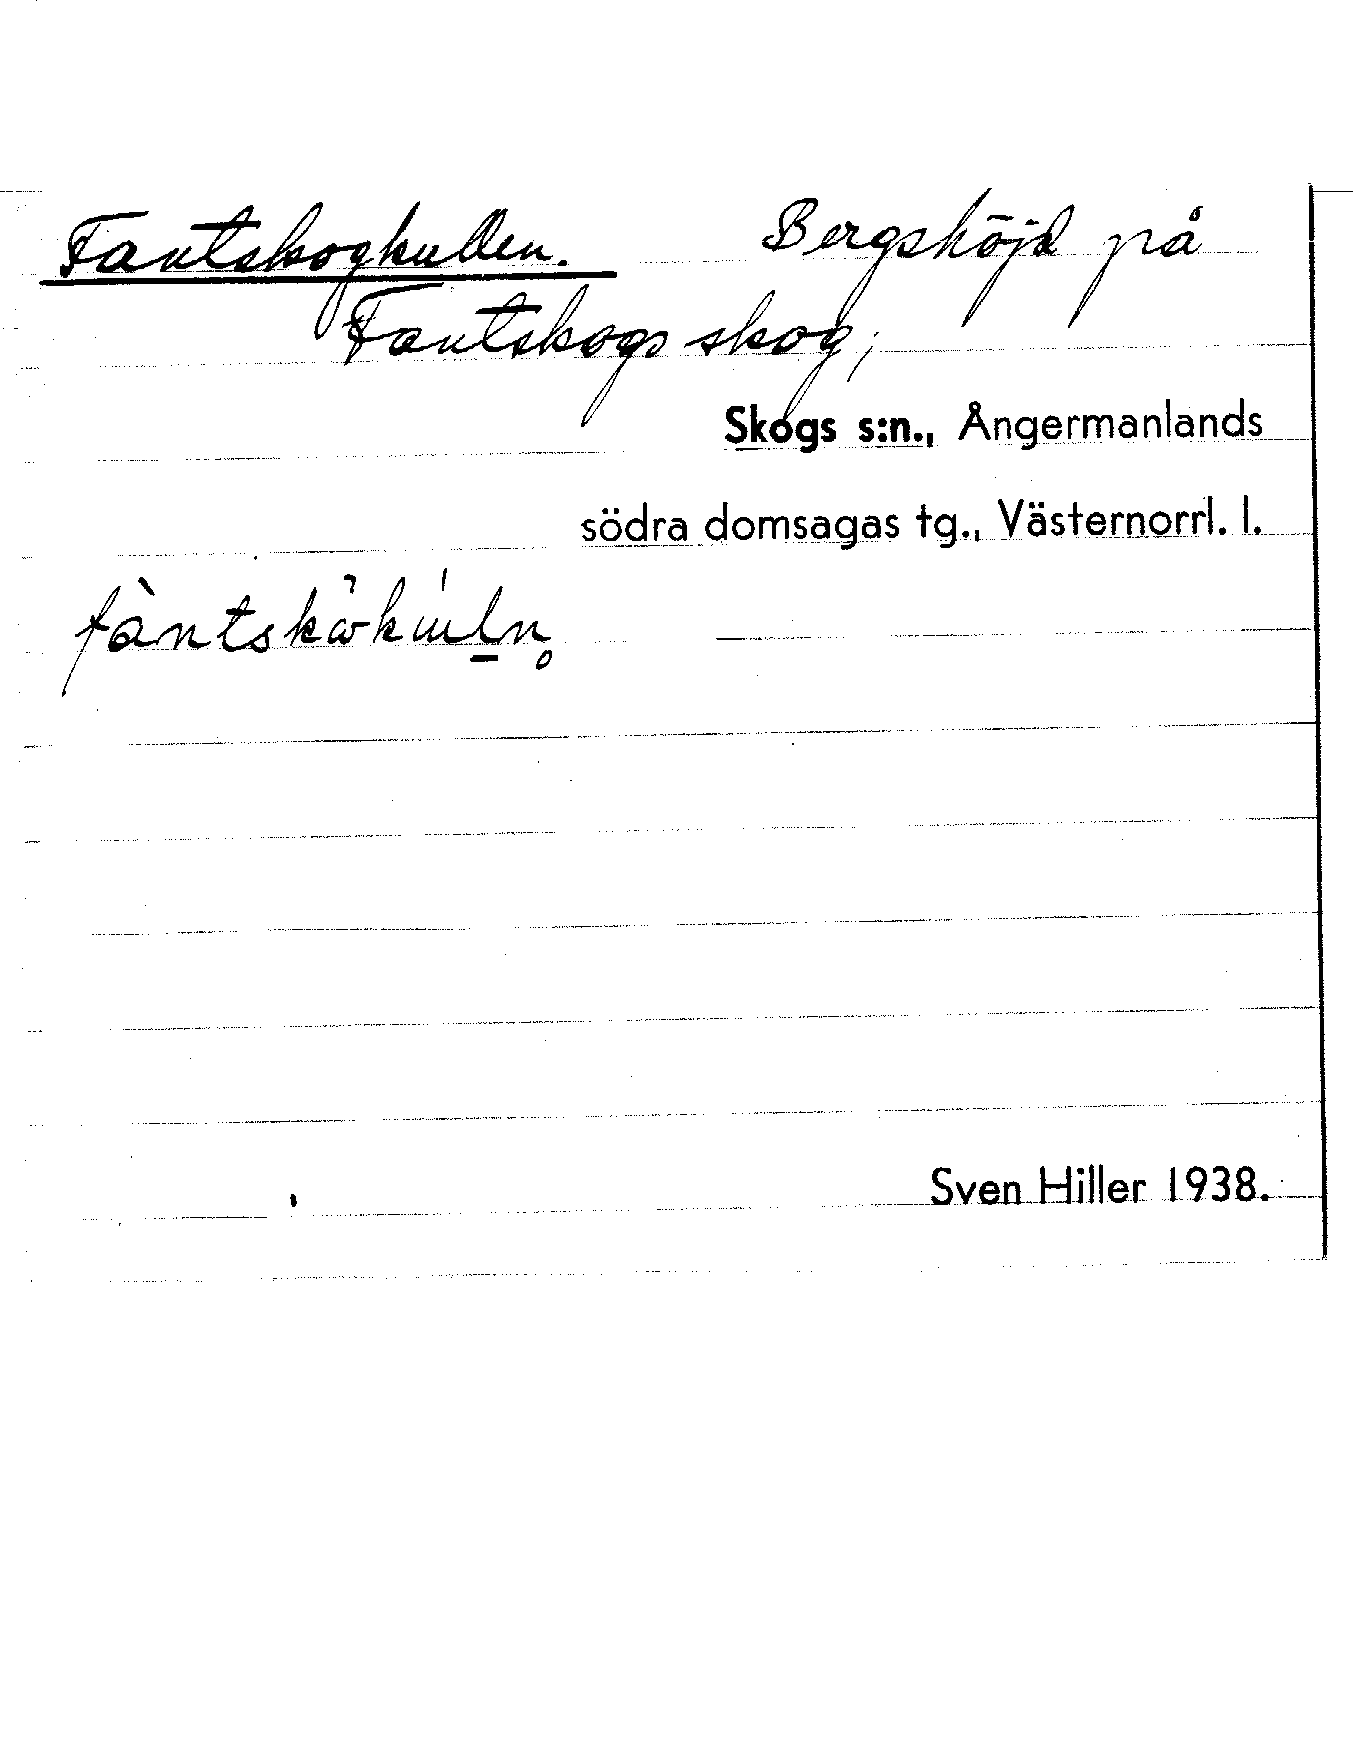 Fantskogkullen. Bergshöjd på
Fantskogs skog,
Skogs s:n., Ångermanlands
södra domsagas tg., Västernorrl. l.
Sven Hiller 1938.